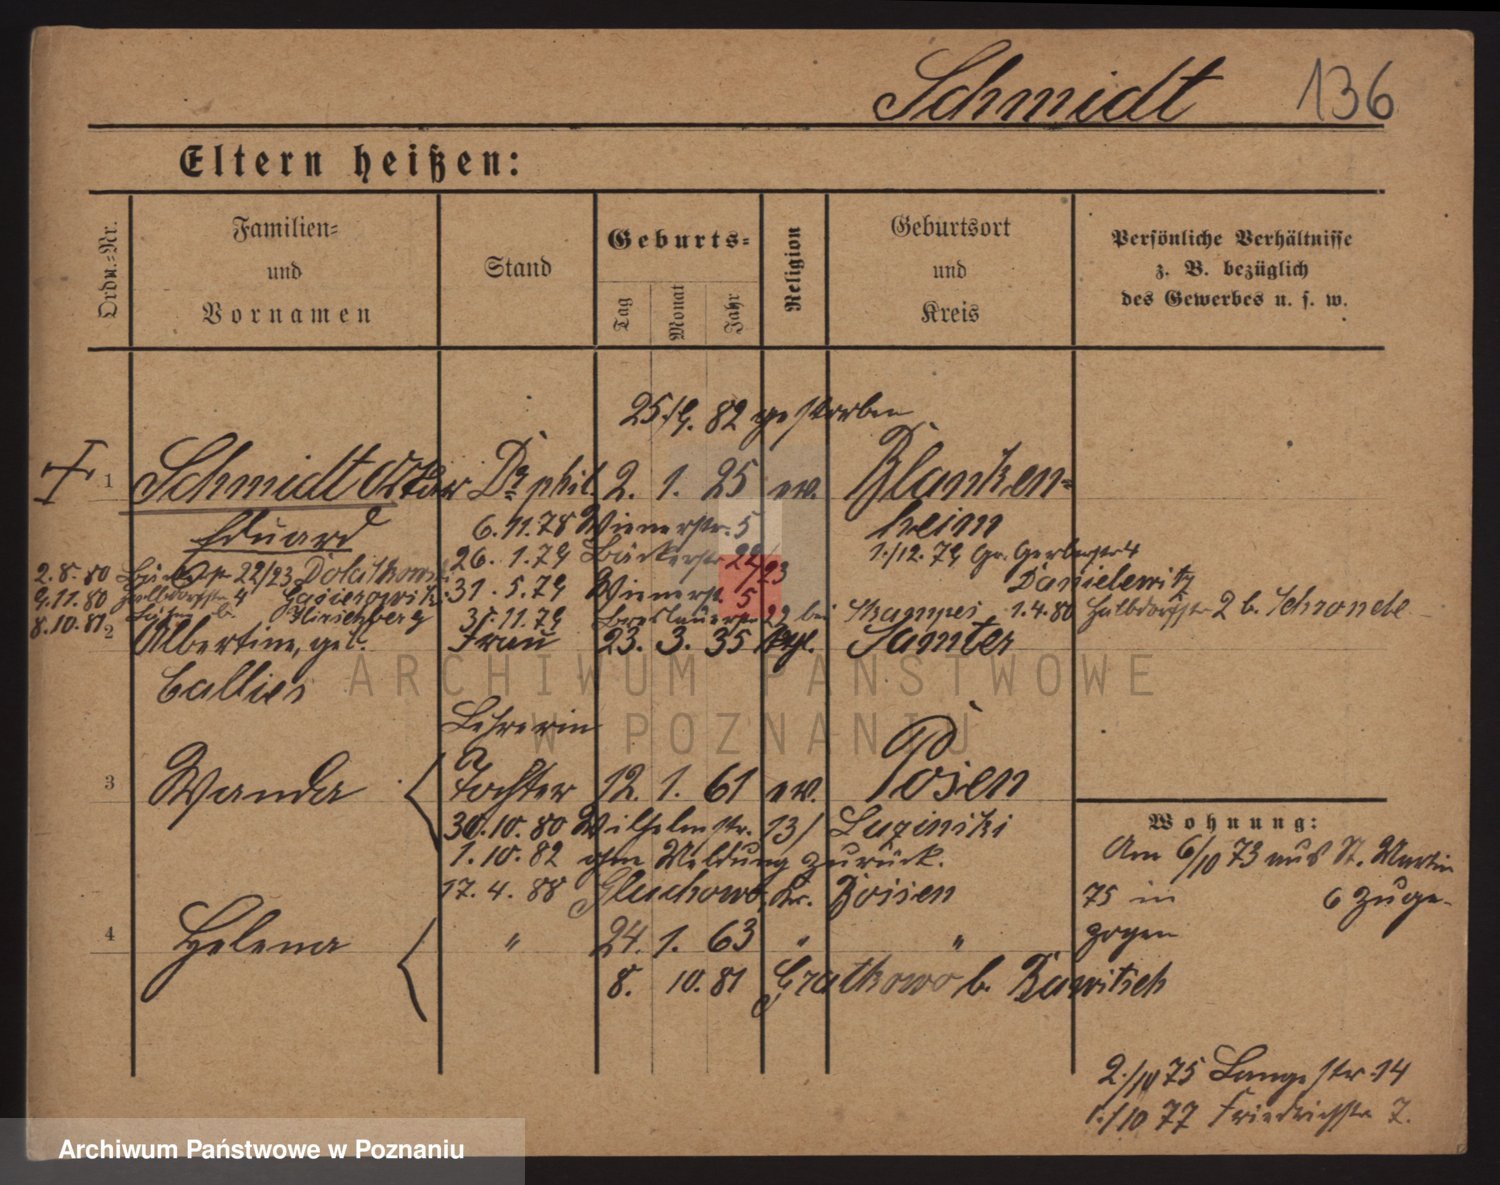 Schmidt 136
Eltern heißen:
Ordn.-Nr.
Familien-
und
Vornamen
Stand
Geburts-
Tag
Monat
Jahr
Religion
Geburtsort
und
Kreis
Persönliche Verhältnisse
z. B. bezüglich
des Gewerbes u. s. w.
25/9. 82 gestorben
1 Schmidt Oskar Dr phil. 2. 1. 25 ev. Blanken-
Eduard 6.11.78 Wienerstr. 5 heim
26. 1.79 Bäckerstr 22/23 1./12. 79 Gr. Gerberstr 4
Danielewitz
2.8.80 22/23 31. 5.79 Wienerstr. 5
9.11.80 Halbdorfstr 4 31.11.79 Breslauerstr 22 bei 1.4.80 Halbdorfstr 2 b.
8.10.81 Hirschberg
2 Albertine, geb. Frau 23. 3. 35 Samter
Callies
Lehrerin
3 Wanda Tochter 12. 1. 61 ev. Posen
30.10.80 Wilhelmstr. 13/ Luzinski
1.10.82 ohne Meldung zurück.
17.4.88 Gluchowo, Kr. Posen
4 Helena " 24. 1. 63 " "
8. 10. 81 b. Rawitsch
Wohnung:
Am 6/10 73 aus St. Martin
75 in 6 zuge-
zogen
2./10 75 Langestr. 14
1./10 77 Friedrichstr. 7.
ARCHIWUM PAŃSTWOWE
W POZNANIU
Archiwum Państwowe w Poznaniu